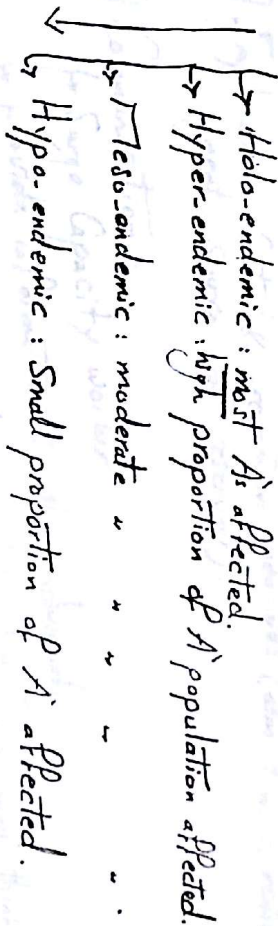 ↳ Holo-endemic : most A's affected.
↳ Hyper-endemic : high proportion of A' population affected.
↳ Meso-endemic : moderate " " " " " .
↳ Hypo-endemic : Small proportion of A' affected.